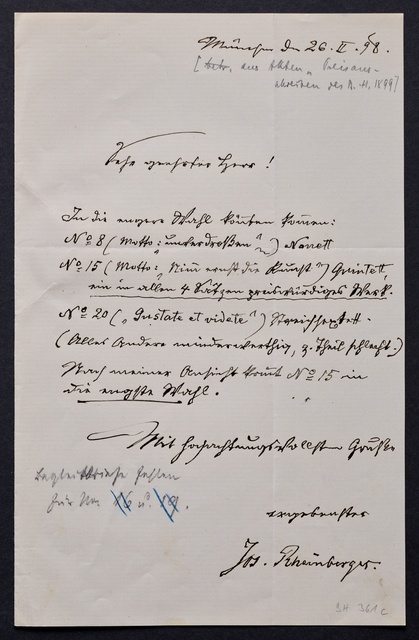 München den 26. II. 98.
aus Akten „ Preisaus-
schreiben des A. M. 1899]
Sehr geehrter Herr!
In die engere Wahl könnten kommen:
No 8 (Motto: „unverdroßen“) Nonett
No 15 (Motto: „Nim ernst die Kunst“) Quintett,
ein in allen 4 Sätzen preiswürdiges Werk.
No 20 („Gustate et videte“) Streichseptett.
(Alles Andere minderwerthig, z. Theil schlecht.)
Nach meiner Ansicht kommt No 15 in
die engste Wahl.
Mit hochachtungsvollstem Gruße
Begleitbriefe fehlen
für Nr. 16 u.
ergebenster
Jos. Rheinberger.